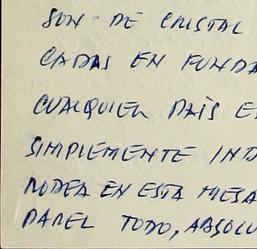 SON DE CRISTAL
CADAS EN FUNDA
CUALQUIER PAÍS E
SIMPLEMENTE IND
RODEA EN ESTA MESA
PAPEL TODO, ABSOLU